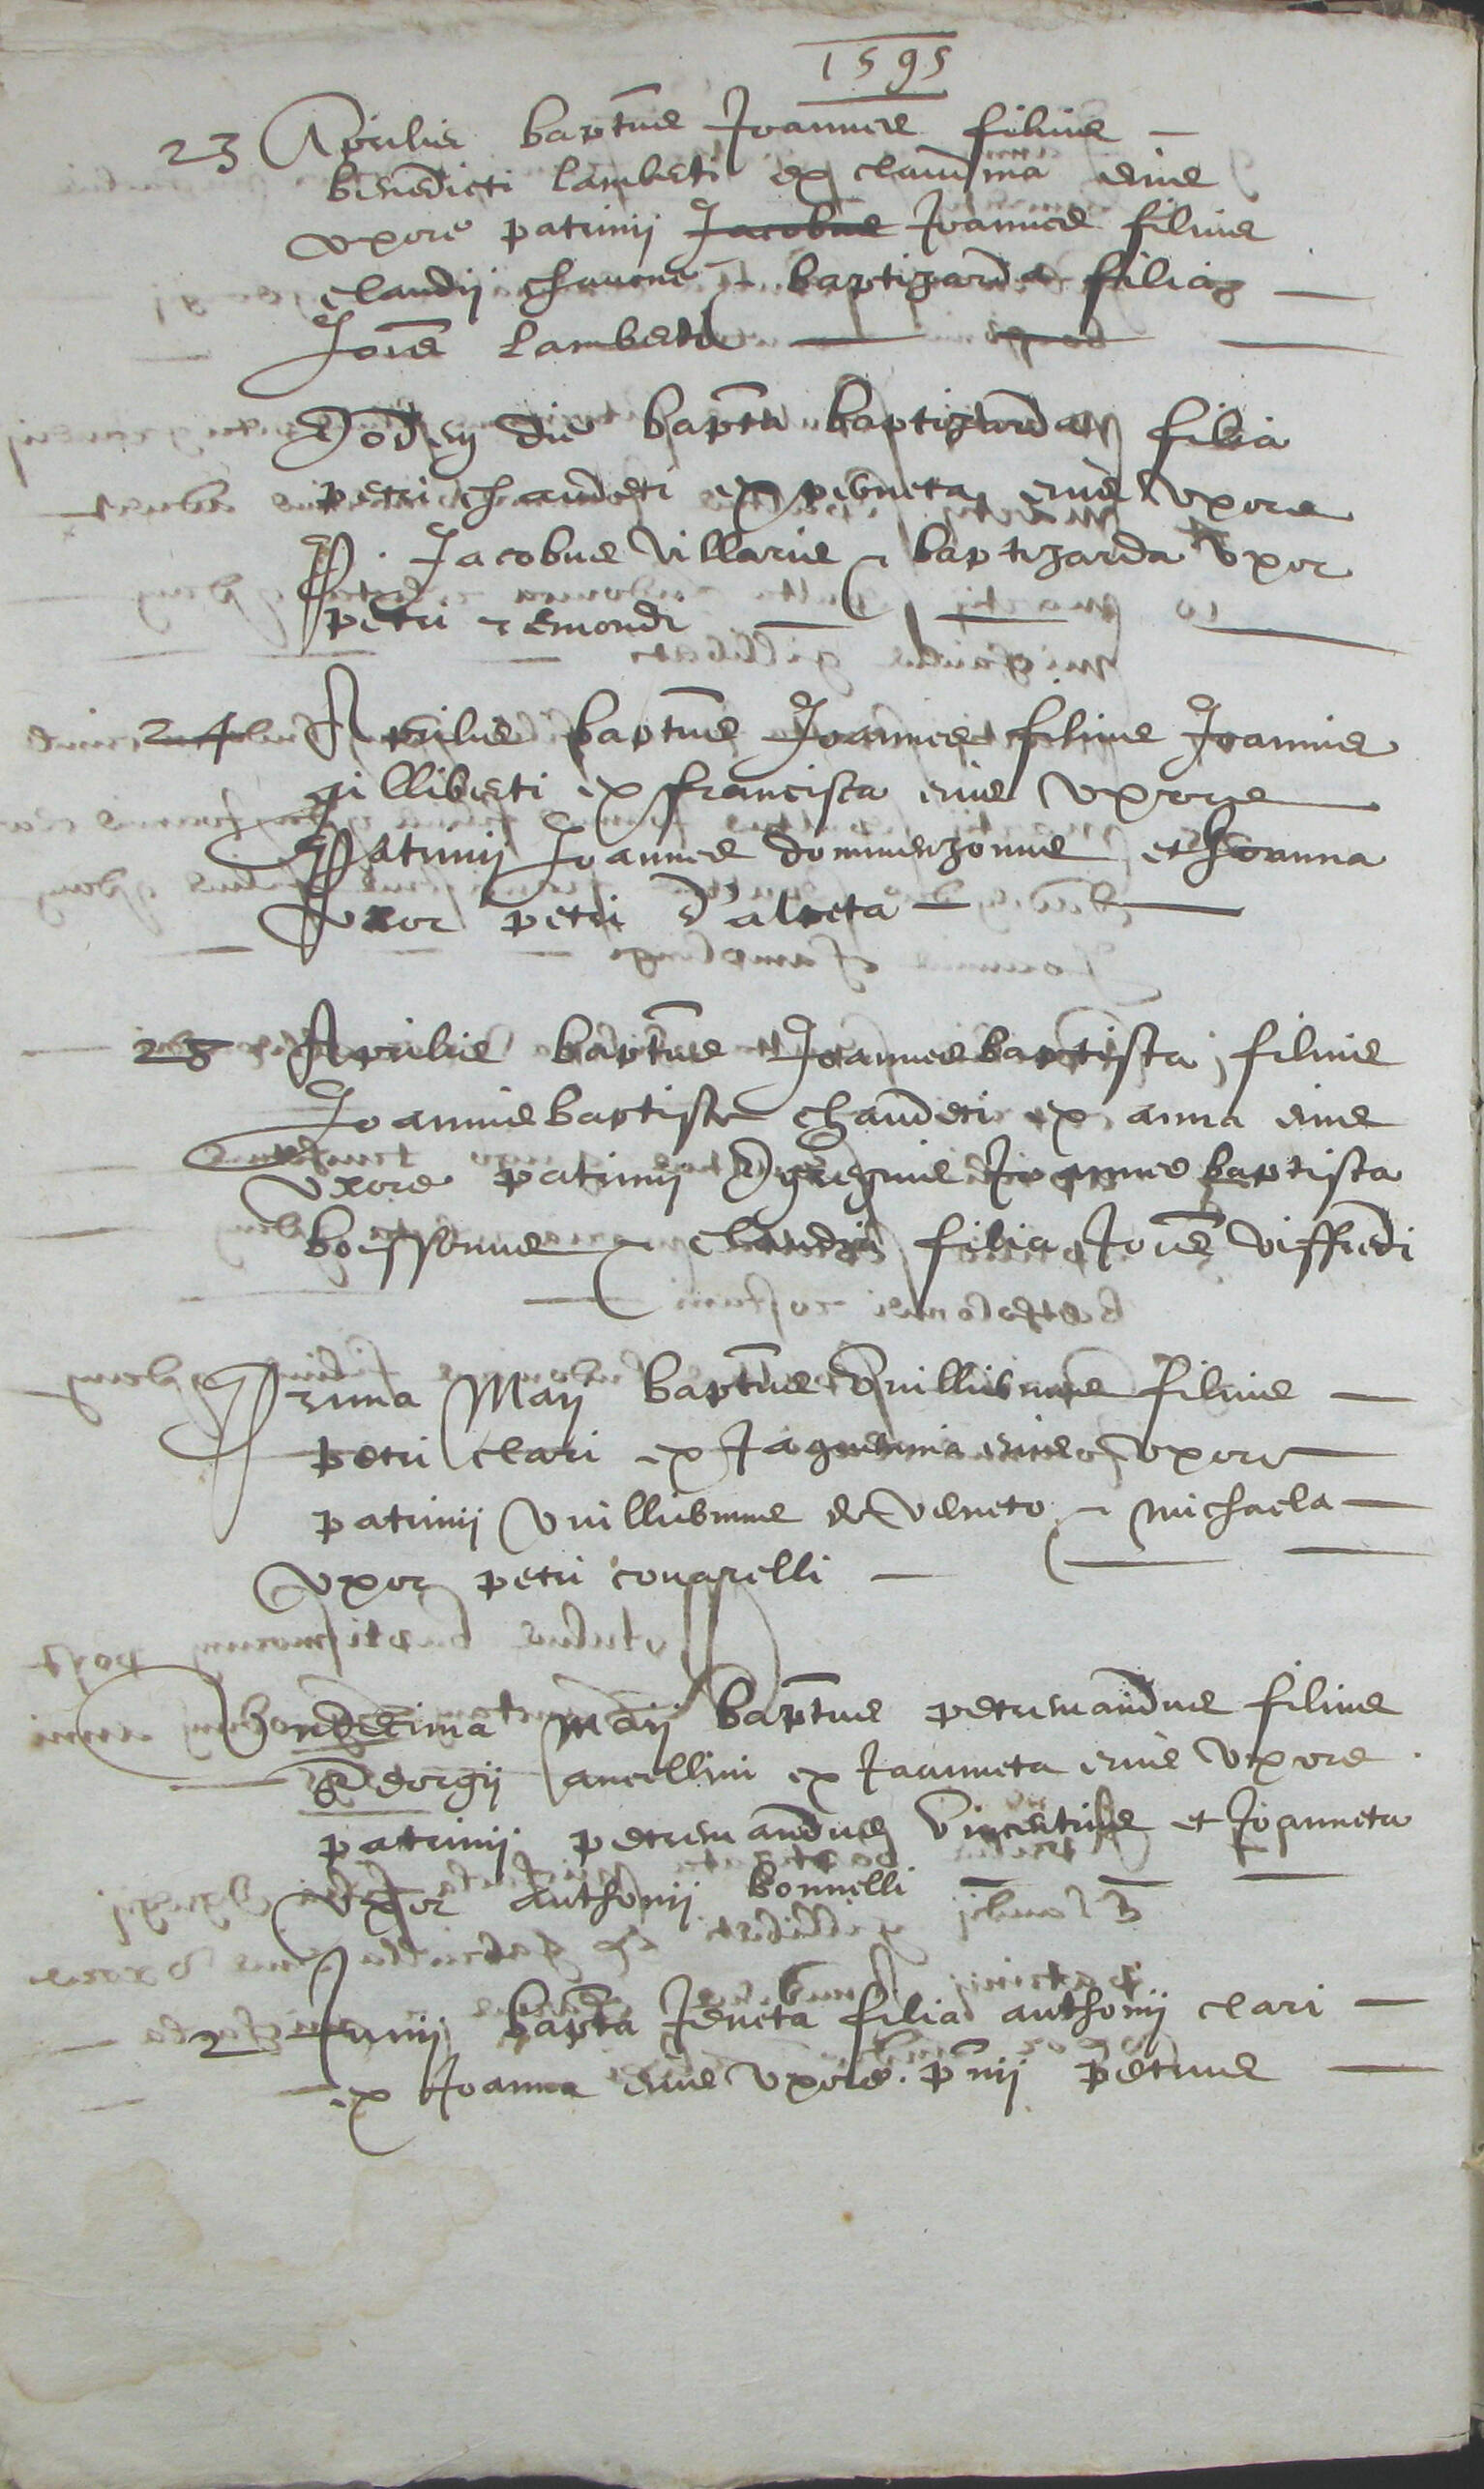 1595
23 Aprilis bapt̄us Joannes filius
benedicti lamberti ex claudina eius
uxore patrinij Jacobus Joannes filius
claudij et baptizarda filia
Joīs lamberti
Eodem die bapt̄a baptizarda filia
petri chauderti ex peroneta eius uxore
P. Jacobus Villarius et baptizarda uxor
petri remondi
24 Aprilis bapt̄us Joannes filius Joannis
gilliberti ex francisca eius uxore
Patrinij Joannes dommenzonus et Joanna
uxor petri
28 Aprilis bapt̄us Joannesbaptista filius
Joannisbaptiste chauderti ex anna eius
uxore patrinij Egregius Joannes baptista
boyssonus et claudia filia Joīs viffredi
Prima Maij bapt̄us Vuillielmus filius
petri clari ex Jaquemina eius uxore
patrinij Vuillielmus de Veneto et michaela
uxor petri
Vndecima maij bapt̄us petremandus filius
Georgij ancellini ex Joanneta eius uxore
patrinij petremandus Vincentius et Joanneta
uxor anthonij bonnelli
2 Junij bapt̄a Jeneta filia anthonij clari
ex Joanna eius uxore. p̄nij petrus